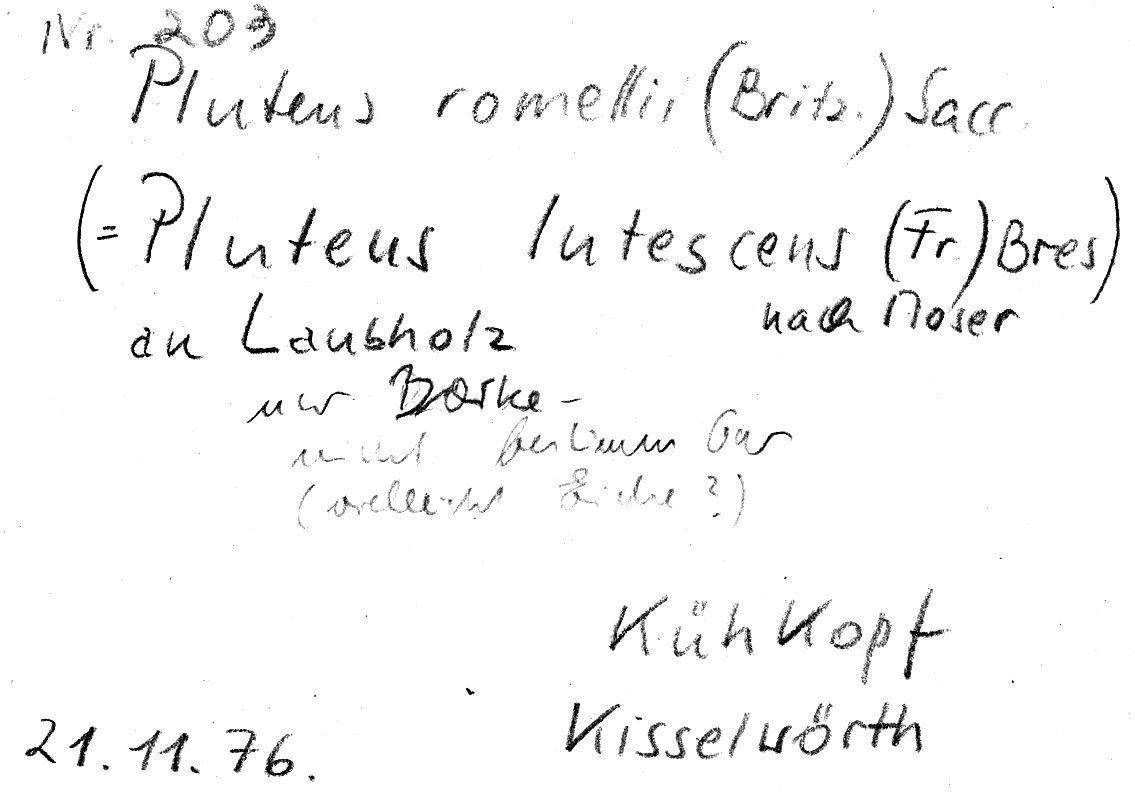 Nr. 203
Pluteus romellii (Britz.) Sacc.
(= Pluteus lutescens (Fr.) Bres)
nach Moser
an Laubholz
nur Borke -
nicht bestimmbar
(vielleicht Eiche?)
Kühkopf
Kisselwörth
21.11.76.